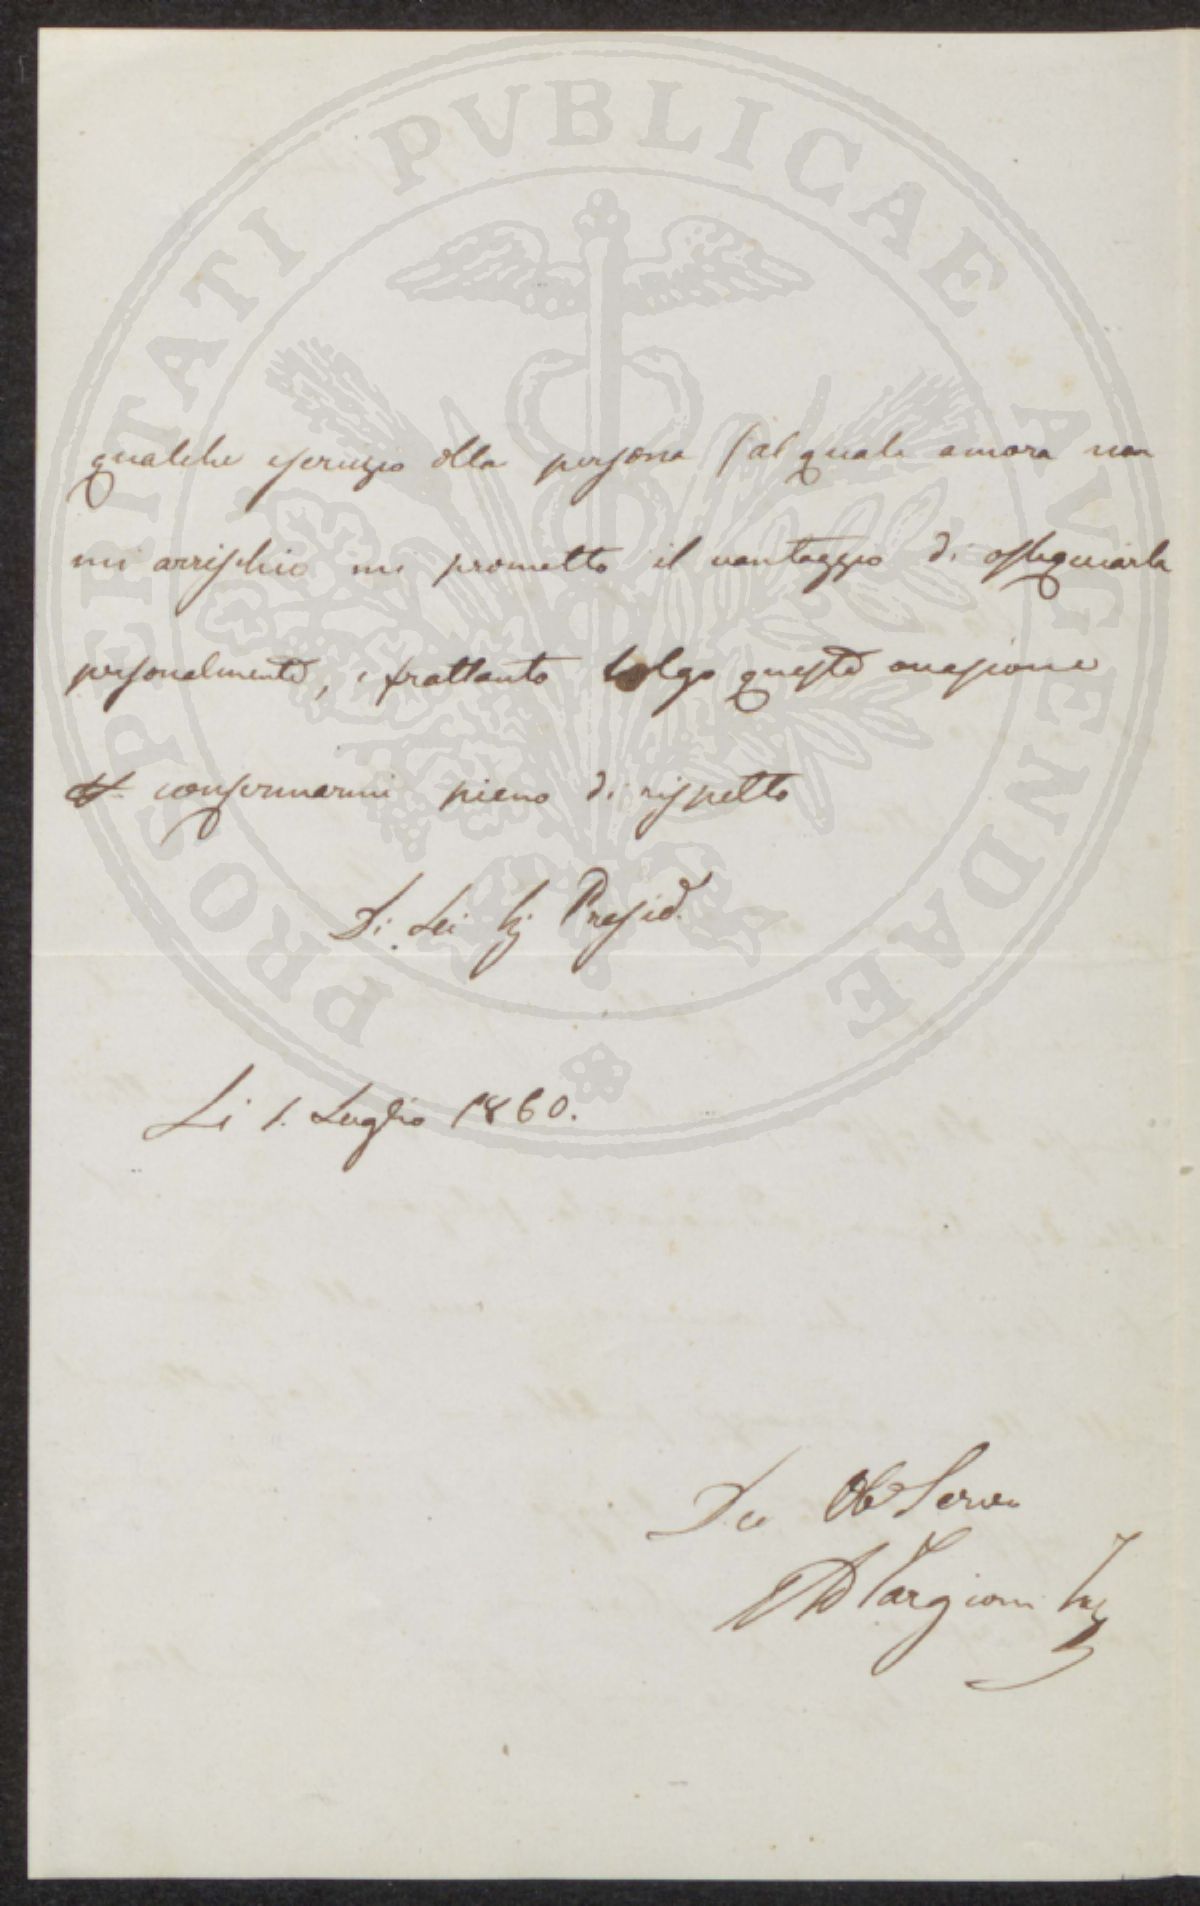 PROSPERITATI PVBLICAE AVGENDAE
qualche servizio alla persona (al quale ancora non
mi arrischio mi prometto il vantaggio di ossequiarla
personalmente, e frattanto colgo questa occasione
confermarmi pieno di rispetto
Di Lei Sig. Presid.
Li 1. Luglio 1860.
Servo
Targioni